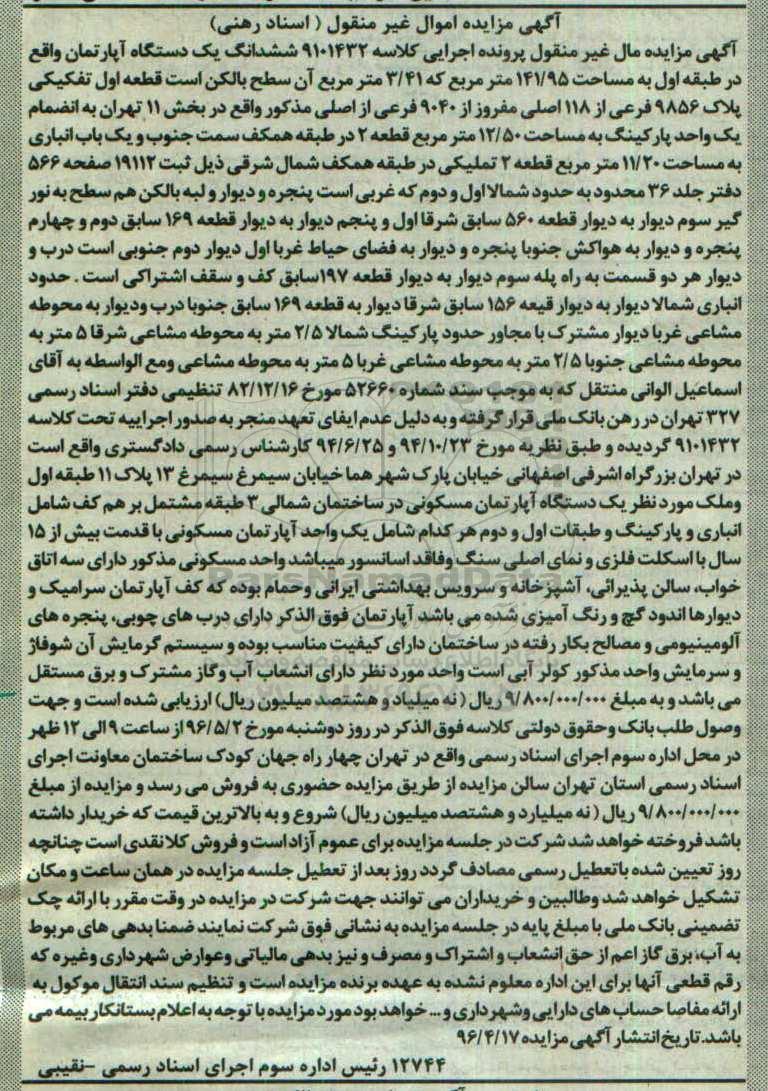 آگهی مزایده اموال غیر منقول ( اسناد رهنی)
آگهی مزایده مال غیر منقول پرونده اجرایی کلاسه ۹۱۰۱۴۳۲ ششدانگ یک دستگاه آپارتمان واقع
در طبقه اول به مساحت ۱۴۱/۹۵ متر مربع که ۳/۴۱ متر مربع آن سطح بالکن است قطعه اول تفکیکی
پلاک ۹۸۵۶ فرعی از ۱۱۸ اصلی مفروز از ۹۰۴۰ فرعی از اصلی مذکور واقع در بخش ۱۱ تهران به انضمام
یک واحد پارکینگ به مساحت ۱۲/۵۰ متر مربع قطعه ۲ در طبقه همکف سمت جنوب و یک باب انباری
به مساحت ۱۱/۲۰ متر مربع قطعه ۲ تملیکی در طبقه همکف شمال شرقی ذیل ثبت ۱۹۱۱۲ صفحه ۵۶۶
دفتر جلد ۳۶ محدود به حدود شمالا اول و دوم که غربی است پنجره و دیوار و لبه بالکن هم سطح به نور
گیر سوم دیوار به دیوار قطعه ۵۶۰ سابق شرقا اول و پنجم دیوار به دیوار قطعه ۱۶۹ سابق دوم و چهارم
پنجره و دیوار به هواکش جنوبا پنجره و دیوار به فضای حیاط غربا اول دیوار دوم جنوبی است درب و
دیوار هر دو قسمت به راه پله سوم دیوار به دیوار قطعه ۱۹۷سابق کف و سقف اشتراکی است . حدود
انباری شمالا دیوار به دیوار قیعه ۱۵۶ سابق شرقا دیوار به قطعه ۱۶۹ سابق جنوبا درب ودیوار به محوطه
مشاعی غربا دیوار مشترک با مجاور حدود پارکینگ شمالا ۲/۵ متر به محوطه مشاعی شرقا ۵ متر به
محوطه مشاعی جنوبا ۲/۵ متر به محوطه مشاعی غربا ۵ متر به محوطه مشاعی ومع الواسطه به آقای
اسماعیل الوانی منتقل که به موجب سند شماره ۵۲۶۶۰ مورخ ۸۲/۱۲/۱۶ تنظیمی دفتر اسناد رسمی
۳۲۷ تهران در رهن بانک ملی قرار گرفته و به دلیل عدم ایفای تعهد منجر به صدور اجراییه تحت کلاسه
۹۱۰۱۴۳۲ گردیده و طبق نظریه مورخ ۹۴/۱۰/۲۳ و ۹۴/۶/۲۵ کارشناس رسمی دادگستری واقع است
در تهران بزرگراه اشرفی اصفهانی خیابان پارک شهر هما خیابان سیمرغ سیمرغ ۱۳ پلاک ۱۱ طبقه اول
وملک مورد نظر یک دستگاه آپارتمان مسکونی در ساختمان شمالی ۳ طبقه مشتمل بر هم کف شامل
انباری و پارکینگ و طبقات اول و دوم هر کدام شامل یک واحد آپارتمان مسکونی با قدمت بیش از ۱۵
سال با اسکلت فلزی و نمای اصلی سنگ وفاقد اسانسور میباشد واحد مسکونی مذکور دارای سه اتاق
خواب، سالن پذیرائی، آشپزخانه و سرویس بهداشتی ایرانی وحمام بوده که کف آپارتمان سرامیک و
دیوارها اندود گچ و رنگ آمیزی شده می باشد آپارتمان فوق الذکر دارای درب های چوبی، پنجره های
آلومینیومی و مصالح بکار رفته در ساختمان دارای کیفیت مناسب بوده و سیستم گرمایش آن شوفاژ
و سرمایش واحد مذکور کولر آبی است واحد مورد نظر دارای انشعاب آب وگاز مشترک و برق مستقل
می باشد و به مبلغ ۹/۸۰۰/۰۰۰/۰۰۰ ریال ( نه میلیاد و هشتصد میلیون ریال) ارزیابی شده است و جهت
وصول طلب بانک وحقوق دولتی کلاسه فوق الذکر در روز دوشنبه مورخ ۹۶/۵/۲ از ساعت ۹ الی ۱۲ ظهر
در محل اداره سوم اجرای اسناد رسمی واقع در تهران چهار راه جهان کودک ساختمان معاونت اجرای
اسناد رسمی استان تهران سالن مزایده از طریق مزایده حضوری به فروش می رسد و مزایده از مبلغ
۹/۸۰۰/۰۰۰/۰۰۰ ریال ( نه میلیارد و هشتصد میلیون ریال) شروع و به بالاترین قیمت که خریدار داشته
باشد فروخته خواهد شد شرکت در جلسه مزایده برای عموم آزاد است و فروش کلا نقدی است چنانچه
روز تعیین شده باتعطیل رسمی مصادف گردد روز بعد از تعطیل جلسه مزایده در همان ساعت و مکان
تشکیل خواهد شد وطالبین و خریداران می توانند جهت شرکت در مزایده در وقت مقرر با ارائه چک
تضمینی بانک ملی با مبلغ پایه در جلسه مزایده به نشانی فوق شرکت نمایند ضمنا بدهی های مربوط
به آب، برق گاز اعم از حق انشعاب و اشتراک و مصرف و نیز بدهی مالیاتی وعوارض شهرداری وغیره که
رقم قطعی آنها برای این اداره معلوم نشده به عهده برنده مزایده است و تنظیم سند انتقال موکول به
ارائه مفاصا حساب های دارایی وشهرداری و ... خواهد بود مورد مزایده با توجه به اعلام بستانکار بیمه می
باشد.تاریخ انتشار آگهی مزایده ۹۶/۴/۱۷
۱۲۷۴۴ رئیس اداره سوم اجرای اسناد رسمی –نقیبی
ParsNamadData